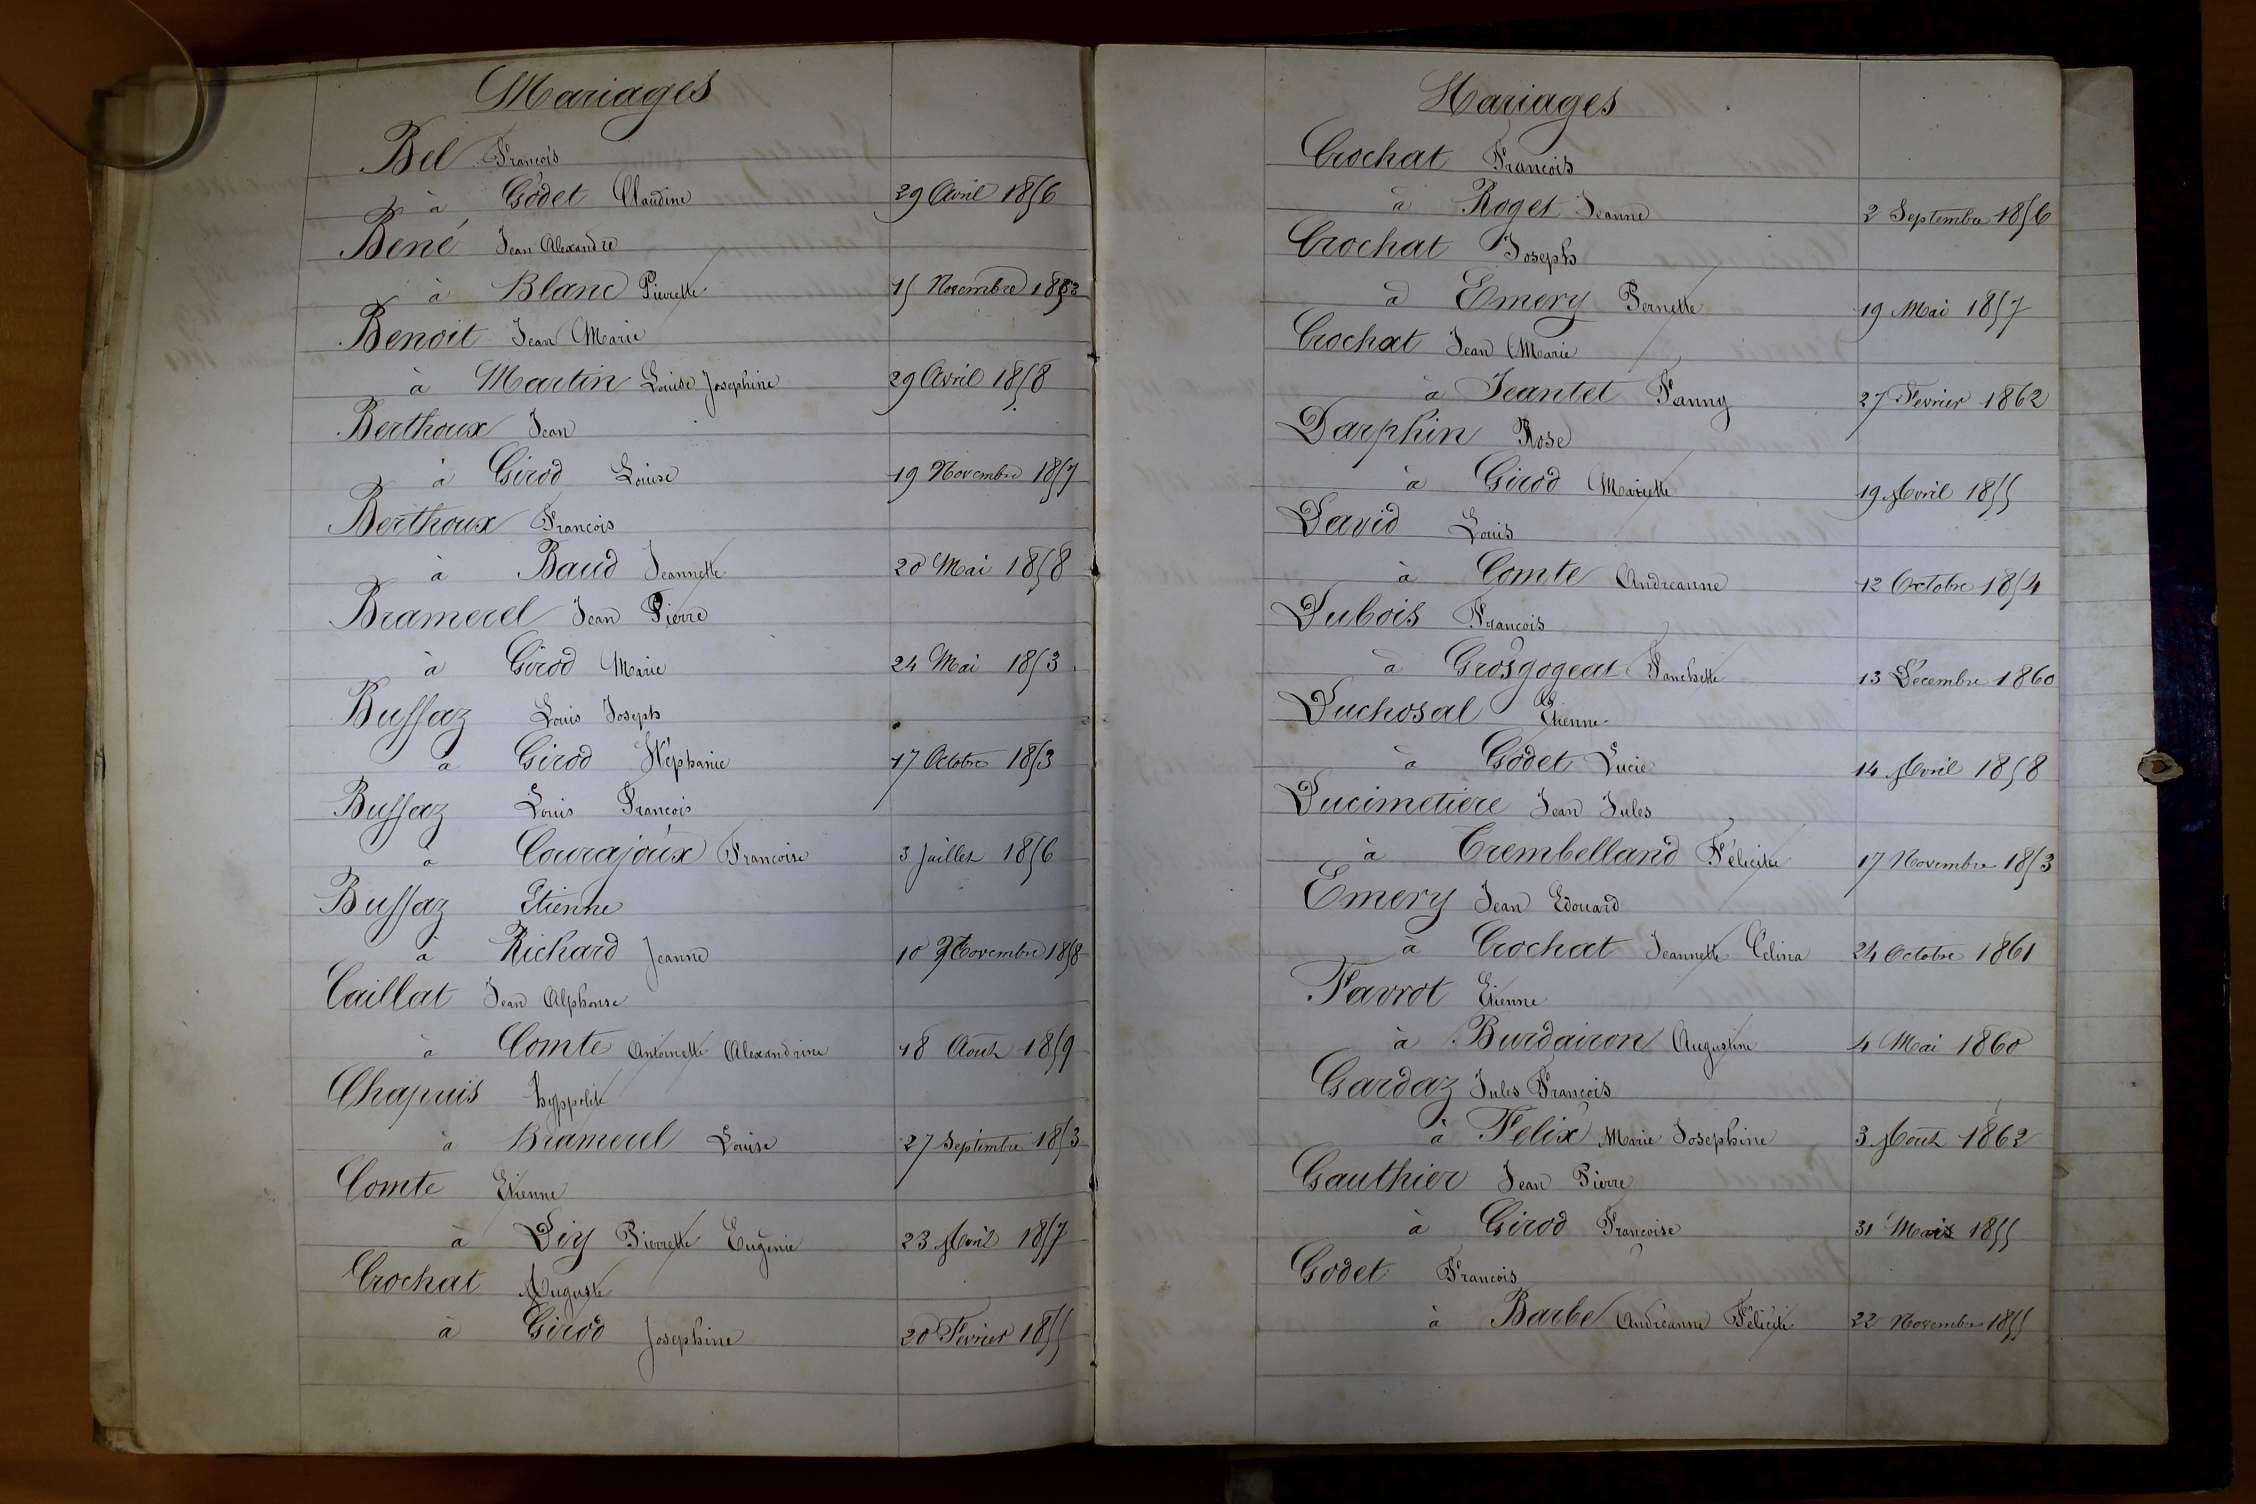 Mariages
Bel François
à Godet Claudine 29 Avril 1856
Bené Jean Alexandre
à Blanc Pierrette 15 Novembre 1853
Benoit Jean Marie
à Martin Louise Josephine 29 Avril 1858
Berthoux Jean
à Girod Louise 19 Novembre 1857
Berthoux François
à Baud Jeannette 20 Mai 1858
Bramerel Jean Pierre
à Girod Marie 24 Mai 1853
Buffaz Louis Joseph
à Girod Stéphanie 17 Octobre 1853
Buffaz Louis François
à Courajoux Françoise 3 Juillet 1856
Buffaz Etienne
à Richard Jeanne 10 Novembre 1858
Caillat Jean Alphonse
à Comte Antoinette Alexandrine 18 Août 1859
Chapuis Hyppolite
à Bramerel Louise 27 Septembre 1853
Comte Etienne
à Diy Pierrette Eugénie 23 Avril 1857
Crochat Auguste
à Girod Josephine 20 Février 1855
Mariages
Crochat François
à Roget Jeanne 2 Septembre 1856
Crochat Joseph
à Emery Pernette 19 Mai 1857
Crochat Jean Marie
à Jeantet Fanny 27 Fevrier 1862
Darphin Rose
à Girod Mariette 19 Avril 1855
David Louis
à Comte Andreanne 12 Octobre 1854
Dubois François
à Grosgogeat Fanchette 13 Décembre 1860
Duchosal Etienne
à Godet Lucie 14 Avril 1858
Ducimetiere Jean Jules
à Crembelland Félicité 17 Novembre 1853
Emery Jean Edouard
à Crochat Jeannette Célina 24 Octobre 1861
Favrot Etienne
à Burdairon Augustine 4 Mai 1860
Gardaz Jules François
à Felix Marie Josephine 3 Août 1862
Gauthier Jean Pierre
à Girod Françoise 31 Mai 1855
Godet François
à Barbe Andréanne Félicité 22 Novembre 1855